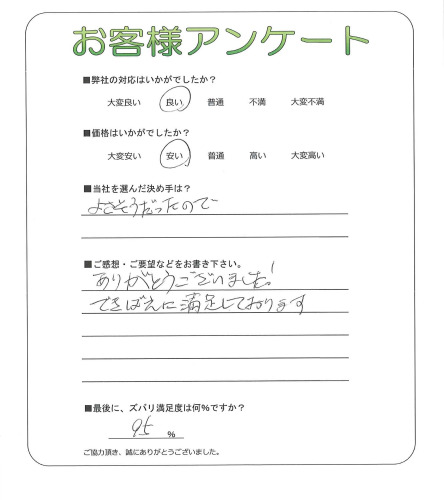 お客様アンケート
■弊社の対応はいかがでしたか？
大変良い 良い 普通 不満 大変不満
■価格はいかがでしたか？
大変安い 安い 普通 高い 大変高い
■当社を選んだ決め手は？
よさそうだったので
■ご感想・ご要望などをお書き下さい。
ありがとうございました！
できばえに満足しております
■最後に、ズバリ満足度は何%ですか？
95 %
ご協力頂き、誠にありがとうございました。